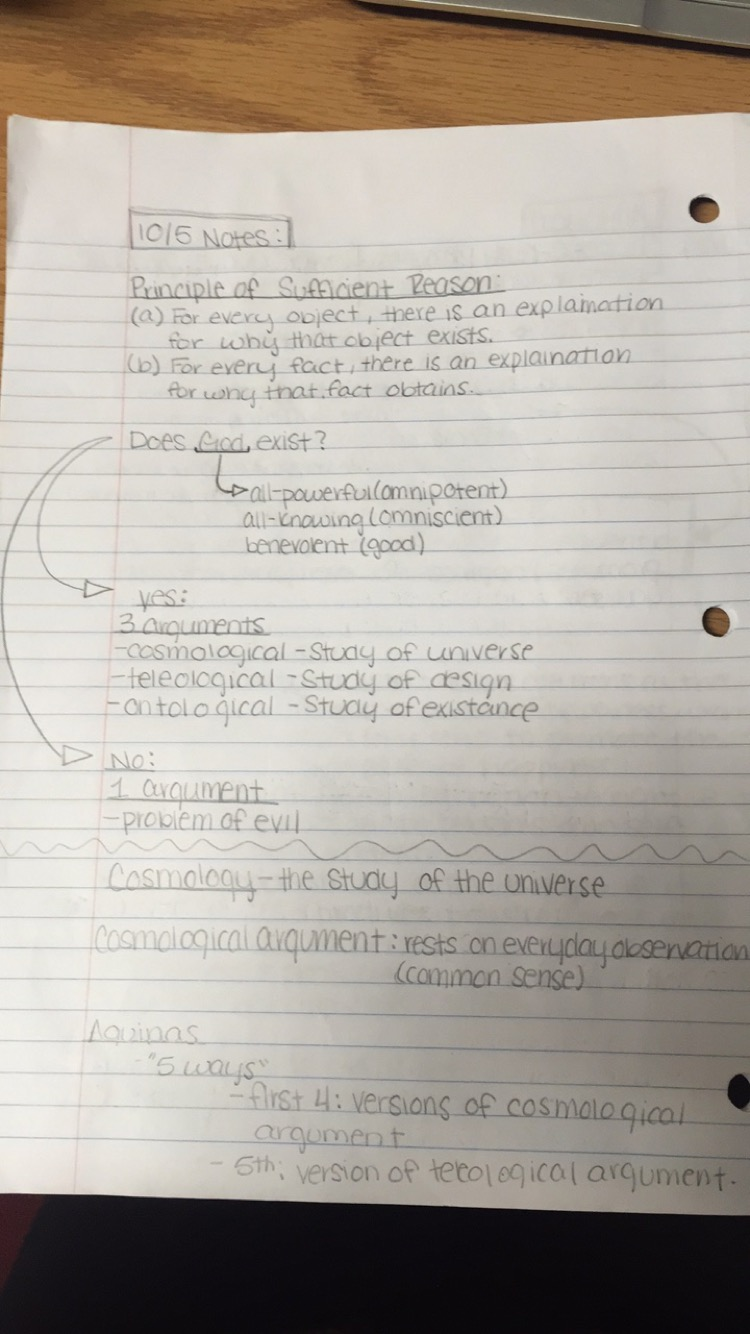 10/5 Notes:
Principle of Sufficient Reason:
(a) For every object, there is an explaination
for why that object exists.
(b) For every fact, there is an explaination
for why that fact obtains.
Does God exist?
all-powerful (omnipotent)
all-knowing (omniscient)
benevolent (good)
yes:
3 arguments
-cosmological - Study of universe
-teleological - Study of design
-ontological - Study of existance
No:
1 argument
-problem of evil
Cosmology - the study of the universe
Cosmological argument: rests on everyday observation
(common sense)
Aquinas
-"5 ways"
-first 4: versions of cosmological
argument
- 5th: version of teleological argument.